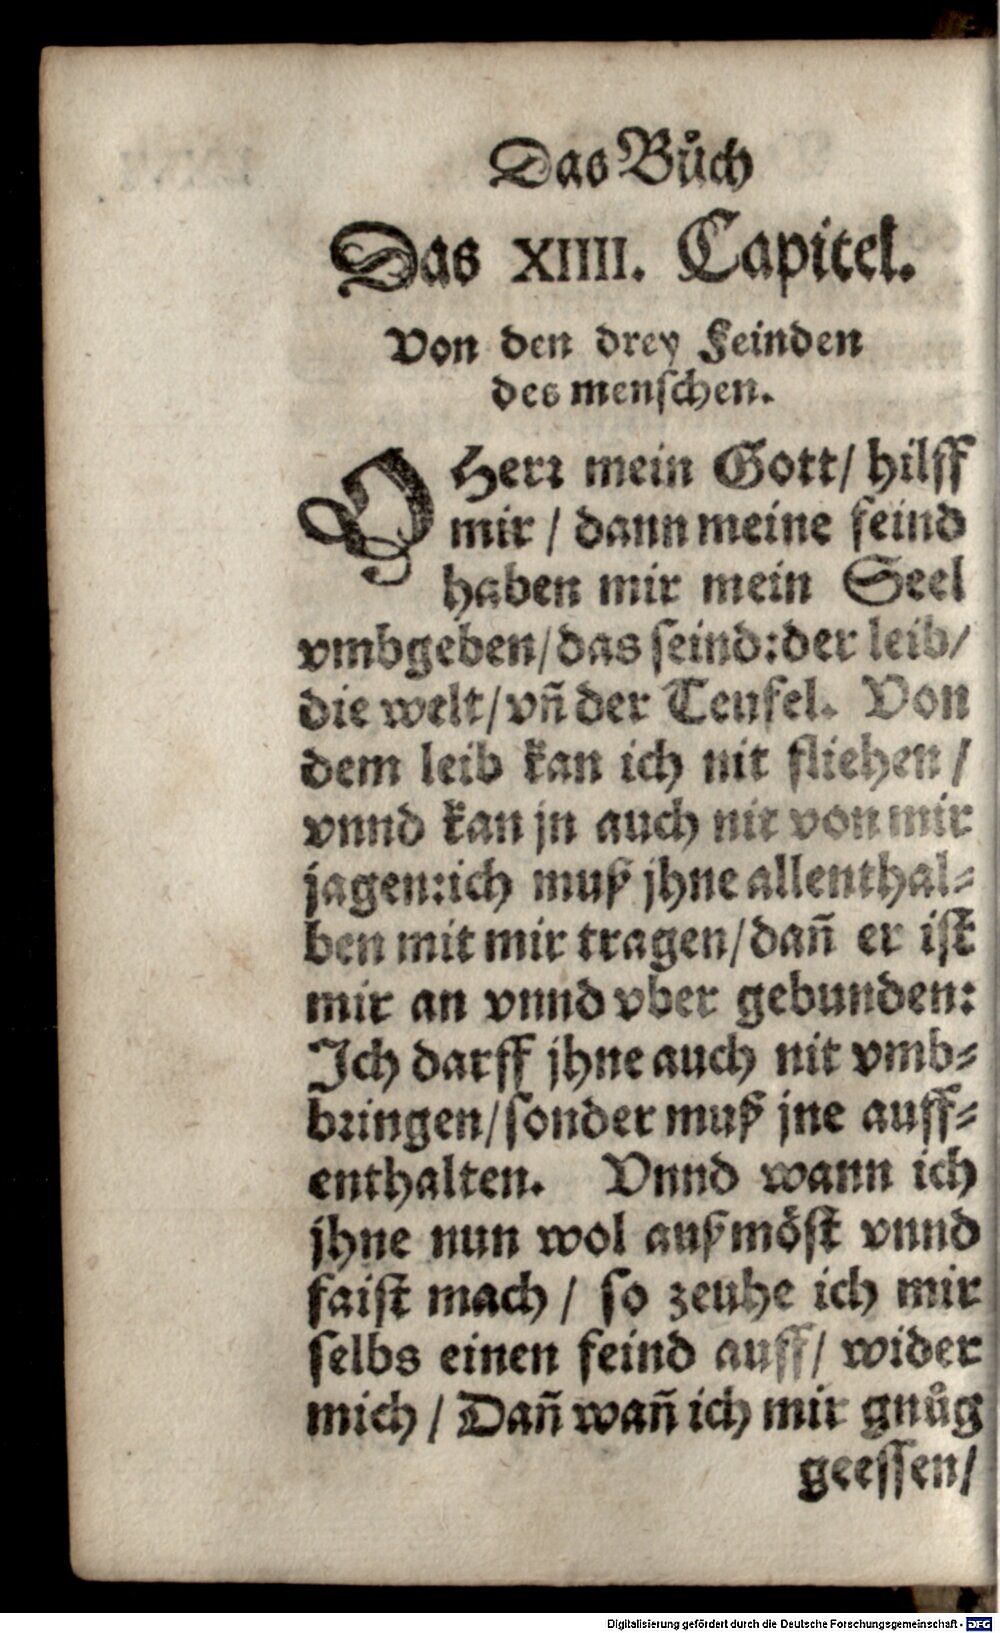 Das Bůch
Das XIIII. Capitel.
Von den drey Feinden
des menschen.
O Herr mein Gott/ hilff
mir / dann meine feind
haben mir mein Seel
vmbgeben/das seind:der leib/
die welt/vñ der Teufel. Von
dem leib kan ich nit fliehen /
vnnd kan jn auch nit von mir
jagen:ich muß jhne allenthal-
ben mit mir tragen/dañ er ist
mir an vnnd vber gebunden:
Ich darff jhne auch nit vmb-
bringen/sonder muß jne auff-
enthalten. Vnnd wann ich
jhne nun wol außmöst vnnd
faist mach / so zeuhe ich mir
selbs einen feind auff/ wider
mich / Dañ wañ ich mir gnůg
geessen/
Digitalisierung gefördert durch die Deutsche Forschungsgemeinschaft - DFG